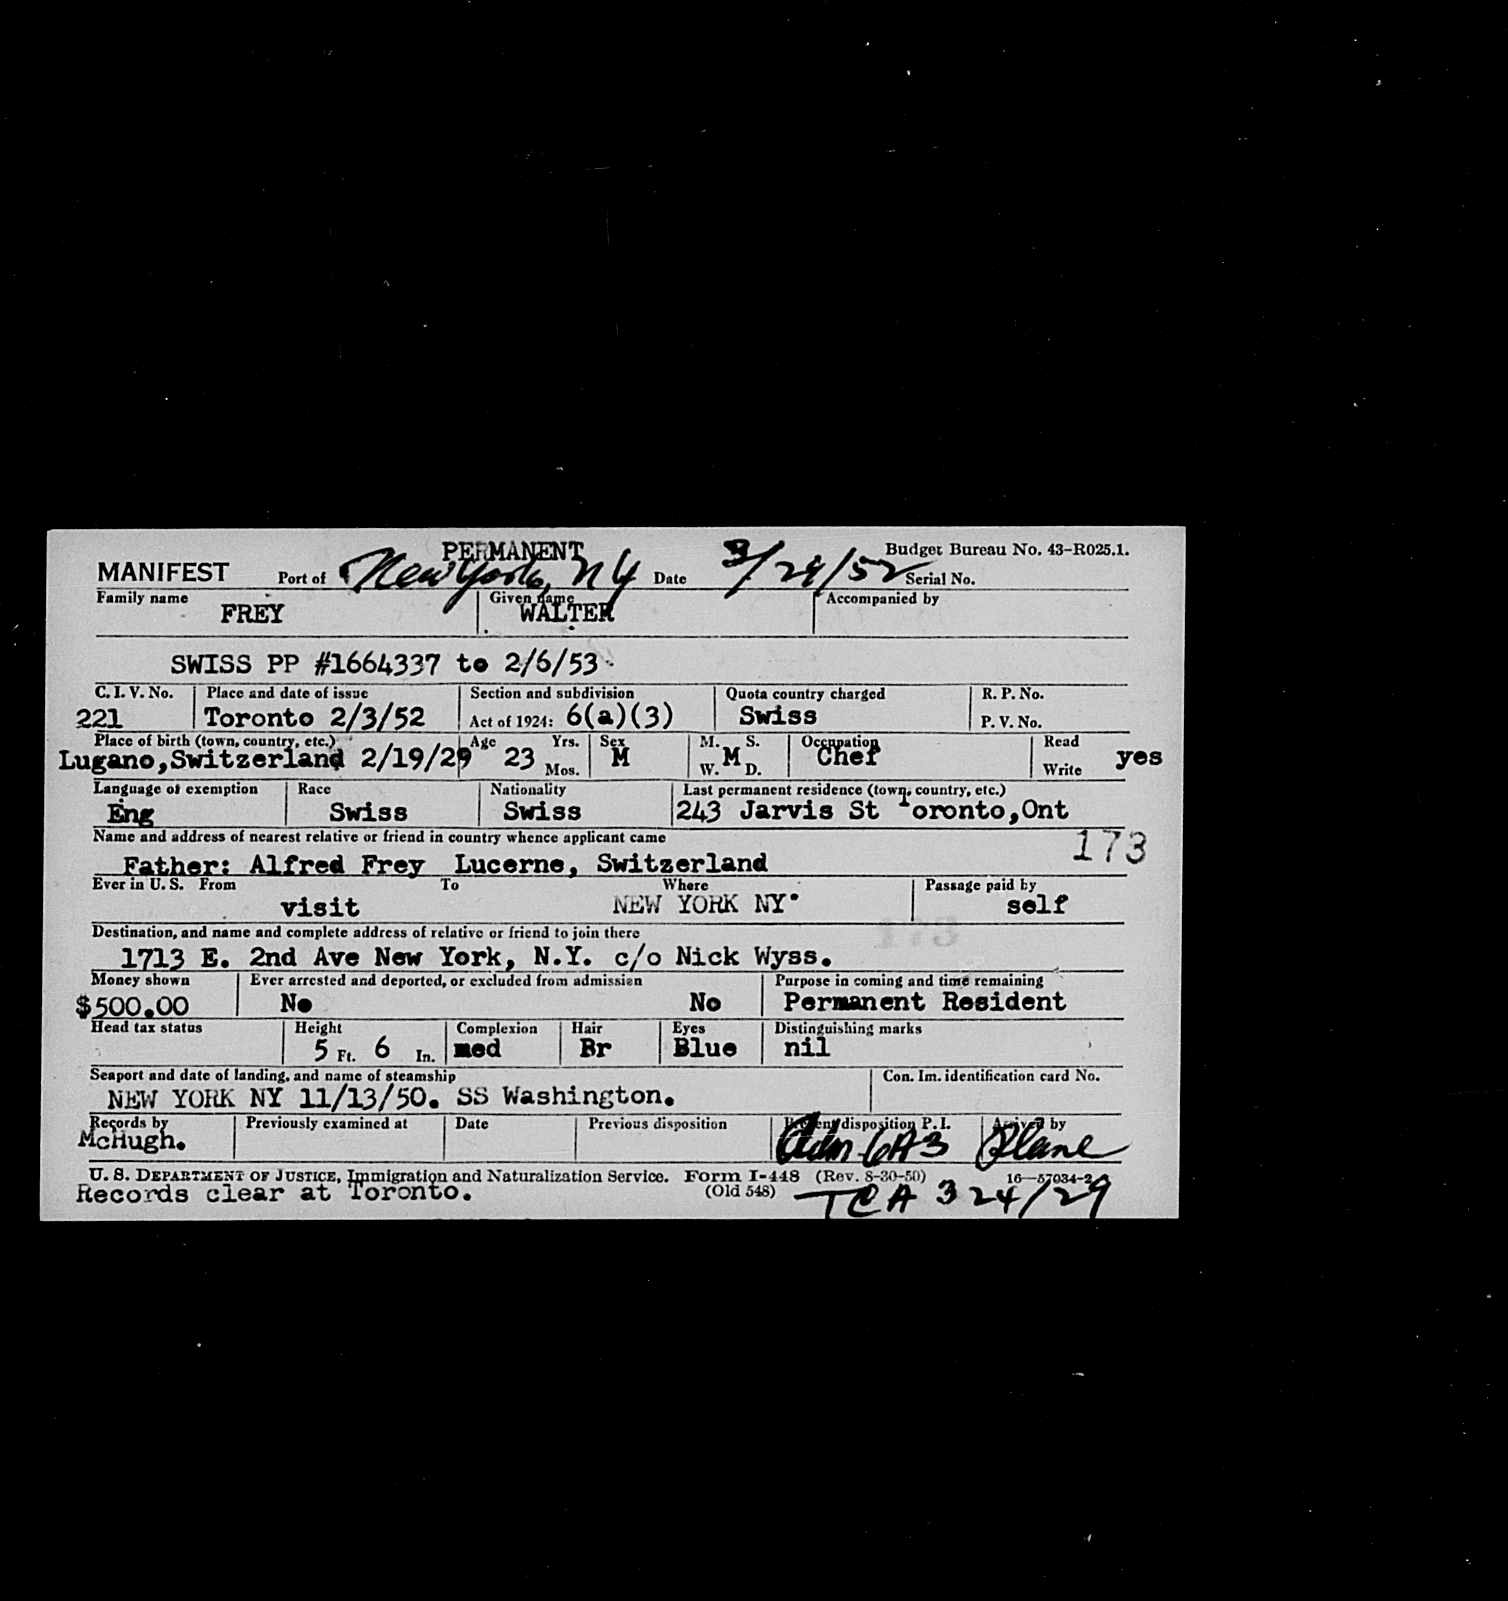 PERMANENT
Budget Bureau No. 43-R025.1.
MANIFEST Port of New York, NY Date 3/24/52 Serial No.
Family name Given name Accompanied by
FREY WALTER
SWISS PP #1664337 to 2/6/53
C. I. V. No. Place and date of issue Section and subdivision Quota country charged R. P. No.
221 Toronto 2/3/52 Act of 1924: 6(a)(3) Swiss P. V. No.
Place of birth (town, country, etc.) Age Yrs. Sex M. S. Occupation Read
Lugano,Switzerland 2/19/29 23 Mos. M W. M D. Chef Write yes
Language of exemption Race Nationality Last permanent residence (town, country, etc.)
Eng Swiss Swiss 243 Jarvis St Toronto,Ont
Name and address of nearest relative or friend in country whence applicant came 173
Father: Alfred Frey Lucerne, Switzerland
Ever in U. S. From To Where Passage paid by
visit NEW YORK NY self
Destination, and name and complete address of relative or friend to join there 173
1713 E. 2nd Ave New York, N.Y. c/o Nick Wyss.
Money shown Ever arrested and deported, or excluded from admission Purpose in coming and time remaining
$500.00 No No Permanent Resident
Head tax status Height Complexion Hair Eyes Distinguishing marks
5 Ft. 6 In. med Br Blue nil
Seaport and date of landing, and name of steamship Con. Im. identification card No.
NEW YORK NY 11/13/50. SS Washington.
Records by Previously examined at Date Previous disposition Present disposition P. I. Arrived by
McHugh. Adm 6A3 Plane
U. S. DEPARTMENT OF JUSTICE, Immigration and Naturalization Service. Form I-448 (Rev. 8-30-50) 16—57034-2
Records clear at Toronto. (Old 548) TCA 324/29